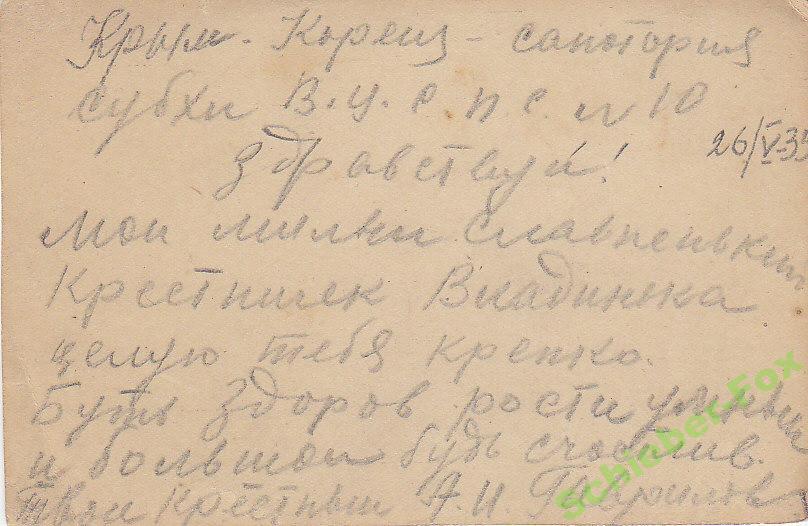 Крым. Кореиз - санатория
субхи В.Ц.С.П.С. N 10
26/V-35
Здравствуй!
Мой милый славненький
Крестничек Владинька
целую тебя крепко.
Будь Здоров рости умный
и большой будь счастлив.
Твой Крестный А.И.
Schieber-Fox